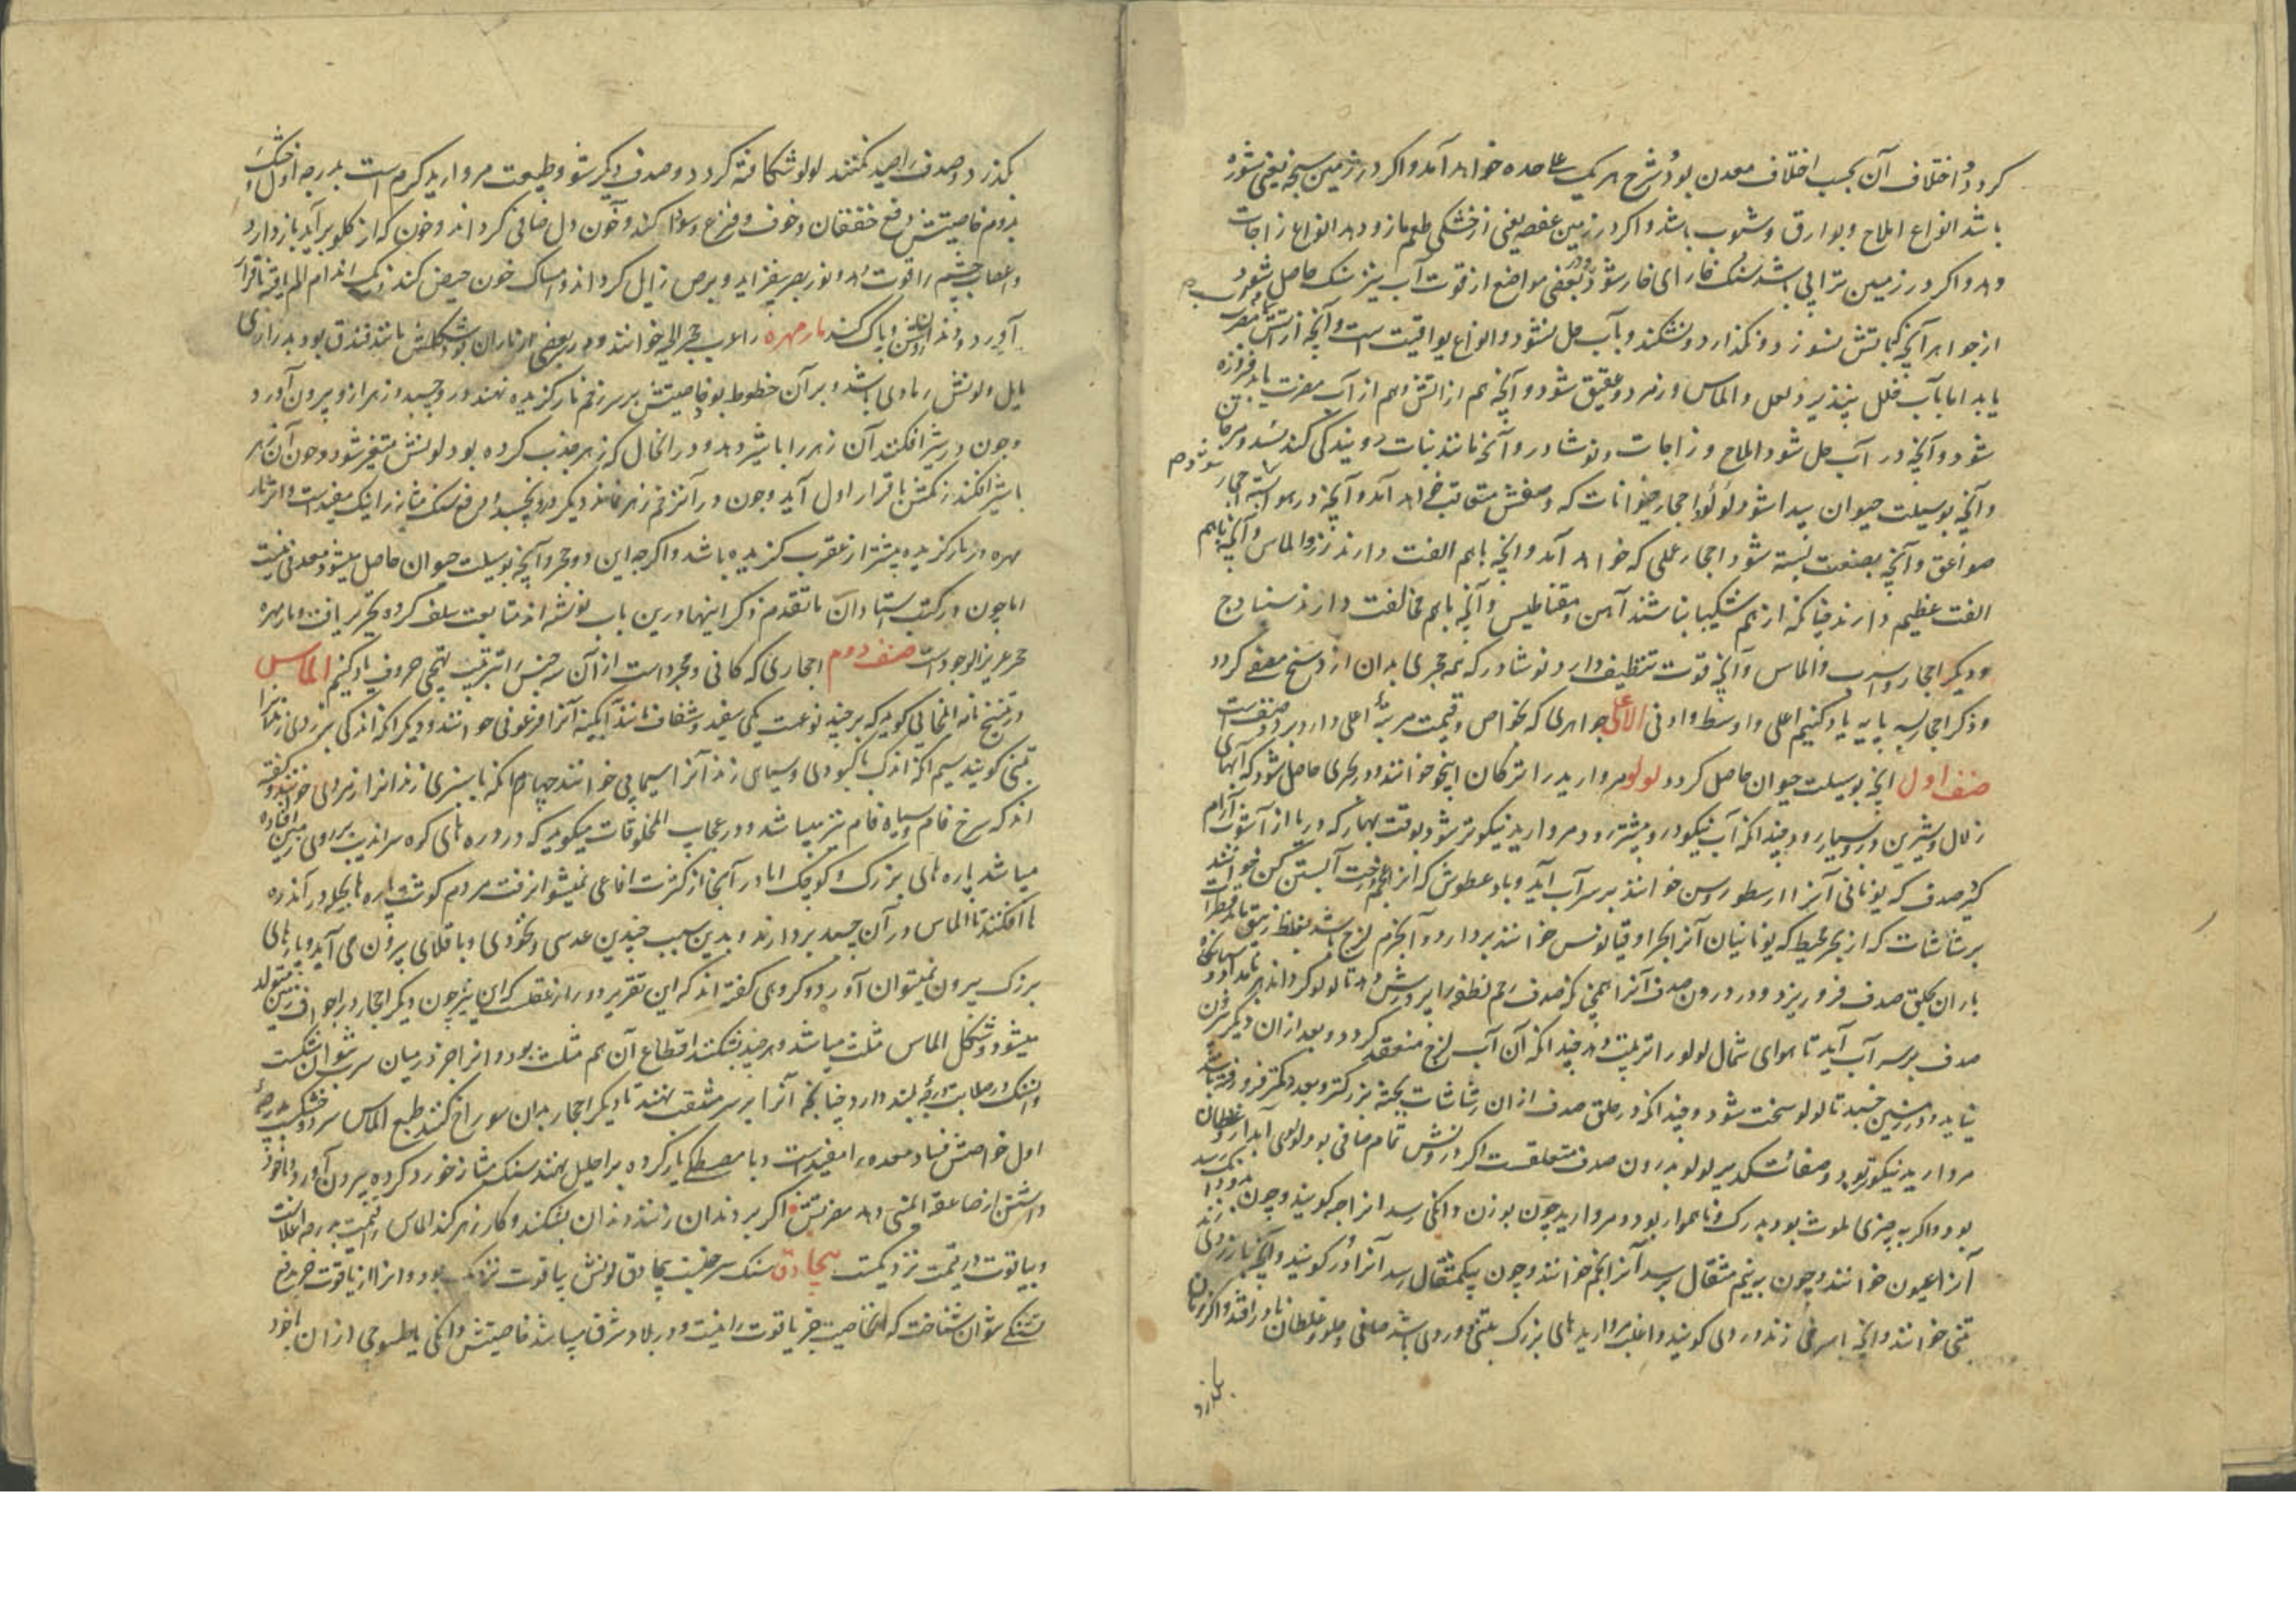 کردد و اختلاف آن بحسب اختلاف معدن بود و شرح هر یک علاحده خواهد آمد و اکر در زمین سبخه یعنی شوره
باشد انواع املاح و بوارق و شبوب باشد و اکر در زمین عفصه یعنی از خشکی طعم مازو دهد انواع زاجات
دهد و اکر در زمین ترابی باشد سنک خارای خار شود و در بعضی مواضع از قوت آب نیز سنک حاصل شود
از جواهر آنچه بآتش نسوزد و نکدازد و نشکند و بآب حل نشود و انواع یواقیت است و آنچه از آتش مضرت
یابد اما بآب خلل نپذیرد لعل و الماس و زمرد و عقیق شود و آنچه هم از آتش و هم از آب مضرت یابد فیروزه
شود و آنچه در آب حل شود املاح و زاجات و نوشادر و آنچه مانند نبات رویندکی کند بسد و مرجان
و آنچه بوسیلت حیوان پیدا شود لولو و احجار حیوانات که وصفش متعاقب خواهد آمد و آنچه در هوا بسته احجار شود
صواعق و آنچه بصنعت بسته شود احجار عملی که خواهد آمد و آنچه باهم الفت دارند زر و الماس و آنچه باهم
الفت عظیم دارند چنانکه از هم شکیبا نباشند آهن و مقناطیس و آنچه باهم مخالفت دارند سنبادج
و دیکر احجار و اسرب و الماس و آنچه قوت تنظیف دارد نوشادر که همه حجری بدان از وسخ مصفی کردد
و ذکر احجار بسه پایه یاد کنیم اعلی و اوسط و ادنی الاعلی جواهری که بخواص و قیمت مرتبهٔ اعلی دارد بر دو صنف است
صنف اول آنچه بوسیلت حیوان حاصل کردد لولو مروارید را ترکان اینجو خوانند و در بحری حاصل شود که آبهای
زلال و شیرین درو بسیار رود چندانکه آب نیکو درو بیشتر رود مروارید نیکوتر شود بوقت بهار که دریا از آشوب آرام
کیرد صدف که یونانی آنرا ارسطوروس خوانند بر سر آب آید و باد عطوش که آنرا بعجم درخت آبستن کن خوانند
بر شاشات که از بحر محیط که یونانیان آنرا بحر اوقیانوس خوانند بردارد و آنجرم لزج باشد بغلظ زیبق مانند قطرات
باران بحلق صدف فرو ریزد و در درون صدف آنرا همچنانکه صدف رحم نطفه را پرورش دهد تا لولو کرداند
صدف بر سر آب آید تا هوای شمال لولو را تربیت دهد چندانکه آن آب لزج منعقد کردد و بعد از آن دیکر برون
نیاید و در زمین چسبد تا لولو سخت شود و چندانکه در حلق صدف از آن رشاشات بیشتر بزرکتر و بعدد کمتر فرو رفته باشد
مروارید نیکوتر بود و صفا و تکدیر لولو بدرون صدف متعلقست اکر درونش تمام صافی بود لولوی آبدار و غلطان
بود و اکر بچیزی ملوث بود بدرنک و ناهموار بود و مروارید چون بوزن دانکی رسد آنرا حبه کویند و چون بدو دانک رسد
آنرا عیون خوانند و چون به نیم مثقال برسد آنرا نجم خوانند و چون بیکمثقال رسد آنرا در کویند و آنچه با زردی زند
تبنی خوانند و آنچه با سرخی زند وردی کویند و اغلب مرواریدهای بزرک تبنی و وردی باشد
بکذرد
بکذرد و صدف را صید نکنند لولو شکافته کردد و صدف دیکر شود و طبیعت مروارید کرم است بدرجه اول خشک
بدوم خاصیتش دفع خفقان و خوف و فزع و سودا کند و خون دل صافی کرداند و خون که از کلو برآید باز دارد
و اعصاب چشم را قوت دهد و نور بصر بیفزاید و برص زایل کرداند و امساک خون حیض کند
آورد و دندان روشن و پاک کند مار مهره را عرب حجرالحیه خوانند و در بعضی از ماران بود شکلش مانند فندق بود بدرازی
مایل و لونش رمادی باشد و بر آن خطوط بود خاصیتش بر سر زخم مار کزیده نهند درو چسبد و زهر ازو بیرون آورد
و چون در شیر افکنند آن زهر را با شیر دهد و در آنحال که زهر جذب کرده بود لونش متغیر شود و چون آن زهر
با شیر افکند رنکش باقرار اول آید و چون در آن زخم زهر نماند دیکر درو نچسبد و دفع سنک مثانه را نیک مفیدست و اثر مار
مهره در مار کزیده بیشتر از عقرب کزیده باشد و اکرچه این دو حجر و آنچه بوسیلت حیوان حاصل میشود معدنی نیست
اما چون در کتب استادان ماتقدم ذکر اینها درین باب نوشته اند متابعت سلف کرده تحریر یافت و مار مهره
حجر عزیزالوجود است صنف دوم احجاری که کانی و مجرد است از آن سه جنس را بترتیب تهجی حروف یاد کنیم الماس
در تنسخ نامه ایلخانی کوید که بر چند نوعست یکی سفید و شفاف مانند آبکینه آنرا فرعونی خوانند و دیکر آنکه اندکی بزردی زند آنرا
تبنی کویند سیم آنکه اندک با کبودی و سیمای زند آنرا سیمابی خوانند چهارم آنکه با سبزی زند آنرا زمردی خوانند و کفته
اند که سرخ فام و سیاه فام نیز میباشد و در عجایب المخلوقات میکوید که در دره های کوه سراندیب بر روی زمین افتاده
میباشد پاره های بزرک و کوچک اما در آنجا از کثرت افاعی نمیشود رفت مردم کوشت پاره ها بحیله در آن دره
ها افکنند تا الماس در آن چسبد بردارند و بدین سبب چندین عدسی و نخودی و باقلای بیرون می آید و پاره های
بزرک بیرون نمیتوان آورد و کروهی کفته اند که این تقریر دور از عقلست که این نیز چون دیکر احجار در اجواف زمین متولد
میشود و شکل الماس مثلث میباشد و هرچند بشکنند اقطاع آن هم مثلث بود و آنرا جز در میان سرب نتوان شکست
و آن سنک در صلابت درجهٔ بلند دارد چنانچه آنرا بر سر مثقب نهند تا دیکر احجار بدان سوراخ کنند طبع الماس سرد و خشکست بدرجهٔ
اول خواصش فساد معده را مفیدست و با مصطکی یار کرده بر احلیل نهند سنک مثانه خورد کرده بیرون آورد و با خود
داشتن از صاعقه ایمنی دهد مضرتش اکر بر دندان زنند دندان بشکند و کار زهر کند الماس را قیمت بدرجه اعلاست
و بیاقوت در قیمت نزدیکست بیجادق سنک سرخیست بیجادق لونش بیاقوت نزدیک بود و آنرا از یاقوت جز بدفع
تشنکی نتوان شناخت که آنخاصیت جز یاقوت را نیست و در بلاد شرق میباشد خاصیتش دانکی یا طسوجی از آن با خود